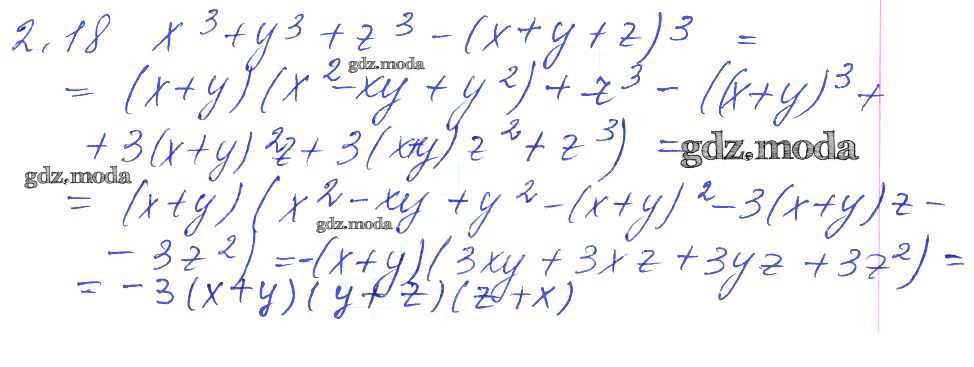 2.18 x³ + y³ + z³ - (x + y + z)³ =
gdz.moda
= (x + y)(x² - xy + y²) + z³ - ((x + y)³ +
+ 3(x + y)²z + 3(x + y)z² + z³) =
gdz.moda
gdz.moda
= (x + y)(x² - xy + y² - (x + y)² - 3(x + y)z -
gdz.moda
- 3z²) = -(x + y)(3xy + 3xz + 3yz + 3z²) =
= -3(x + y)(y + z)(z + x)